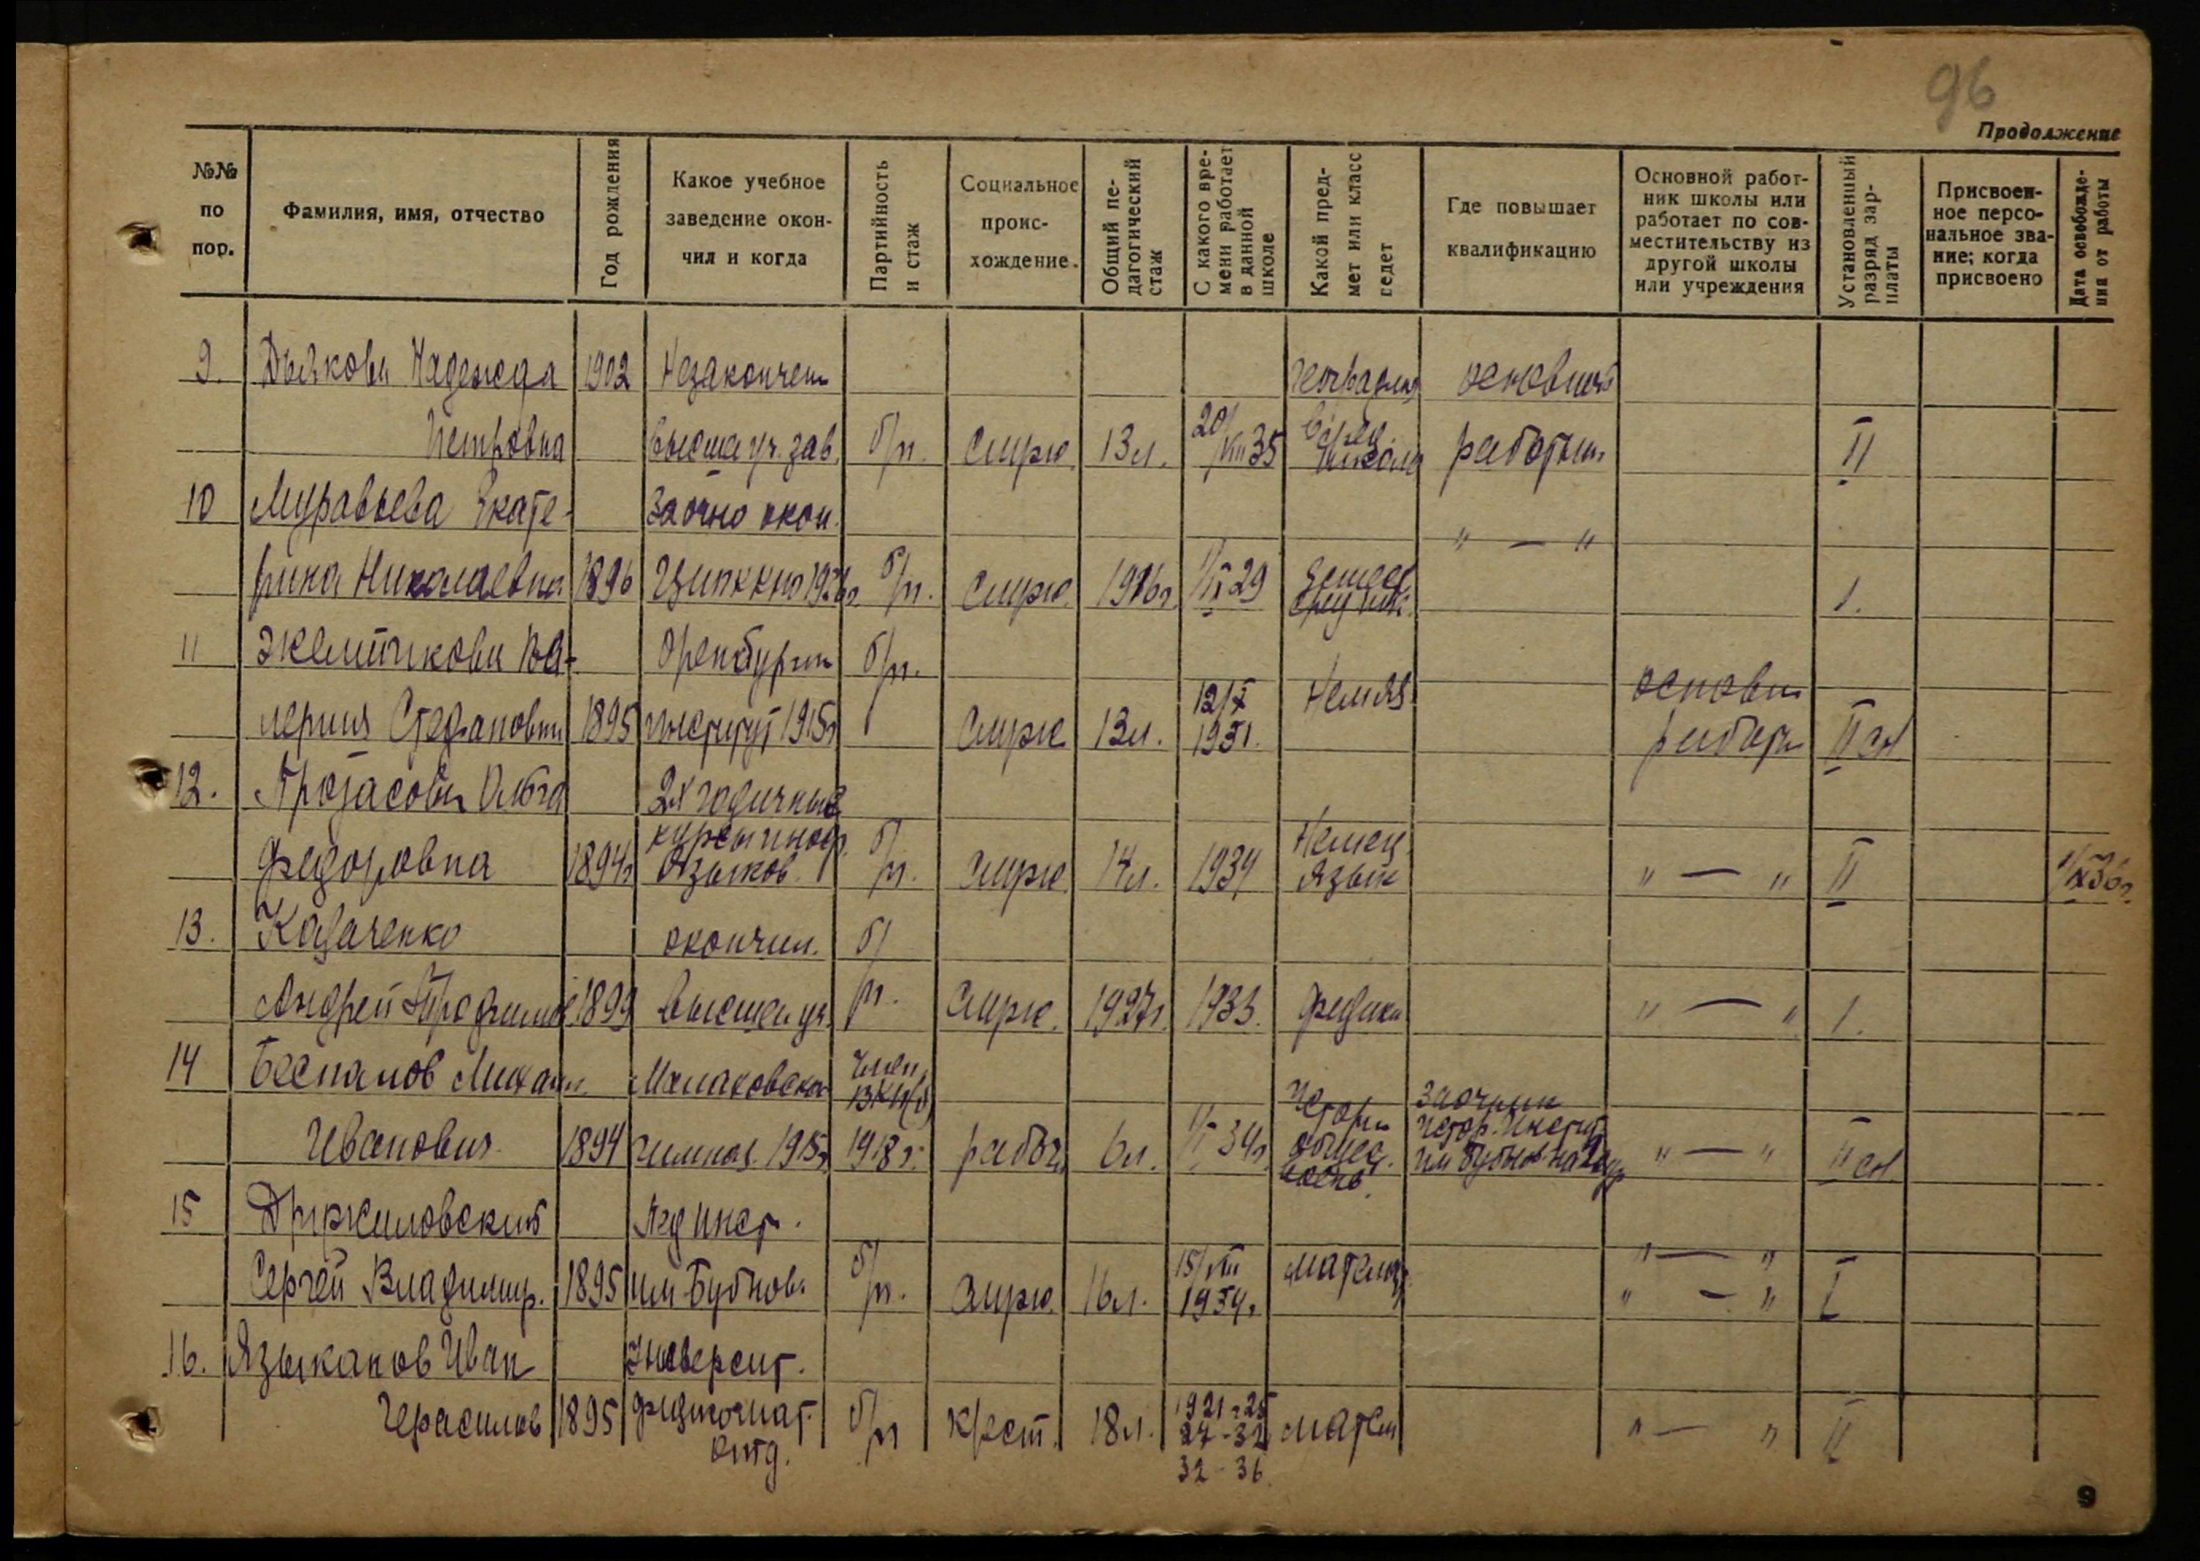 96
Продолжение
№№ по пор.
Фамилия, имя, отчество
Год рождения
Какое учебное заведение окончил и когда
Партийность и стаж
Социальное происхождение.
Общий педагогический стаж
С какого времени работает в данной школе
Какой предмет или класс ведет
Где повышает квалификацию
Основной работник школы или работает по совместительству из другой школы или учреждения
Установленный разряд зарплаты
Присвоенное персональное звание; когда присвоено
Дата освобождения от работы
9. Дьякова Надежда 1902 Незакончен география основной
Петровна высше уч. зав. б/п. служ. 13 л. 20/VIII 35 в сред. школа работник II
10 Муравьева Екате- Заочно окон. " — "
рина Николаевна 1896 б/п. служ. 1916г. 1/IX 29 I.
11 Желтикова Ва- Оренбургск б/п. Нем яз основн
лерия Стефановн 1895 институт 1915г служ 13 л. 12/X 1931. работн II сп
12. Протасова Ольга 2х годичные
Федоровна 1894г курсы иностр. языков. б/п. служ. 14 л. 1934 Немец. язык " — " II 1/IX 36г.
13. Казаченко окончил. б/
Андрей Трофимов 1899 высшеи уч. п. служ. 1927г. 1933. физика " — " I.
14 Беспалов Михаил Малаховская Член ВКП(б) заочник
Иванович 1894 гимназ. 1915г. 1918г. рабоч. 6 л. 34г. истор. общес. истор. инстит им Бубнова " — " II сп
15 Држиловский Пед инст. " — "
Сергей Владимир. 1895 им Бубнова б/п. служ. 16 л. 15/VIII 1934г. матем " — " I
16. Языканов Иван Университ.
Герасимов 1895 физикомат. отд. б/п крест. 18 л. 1921-25 27-32 32-36. матем " — " II
9